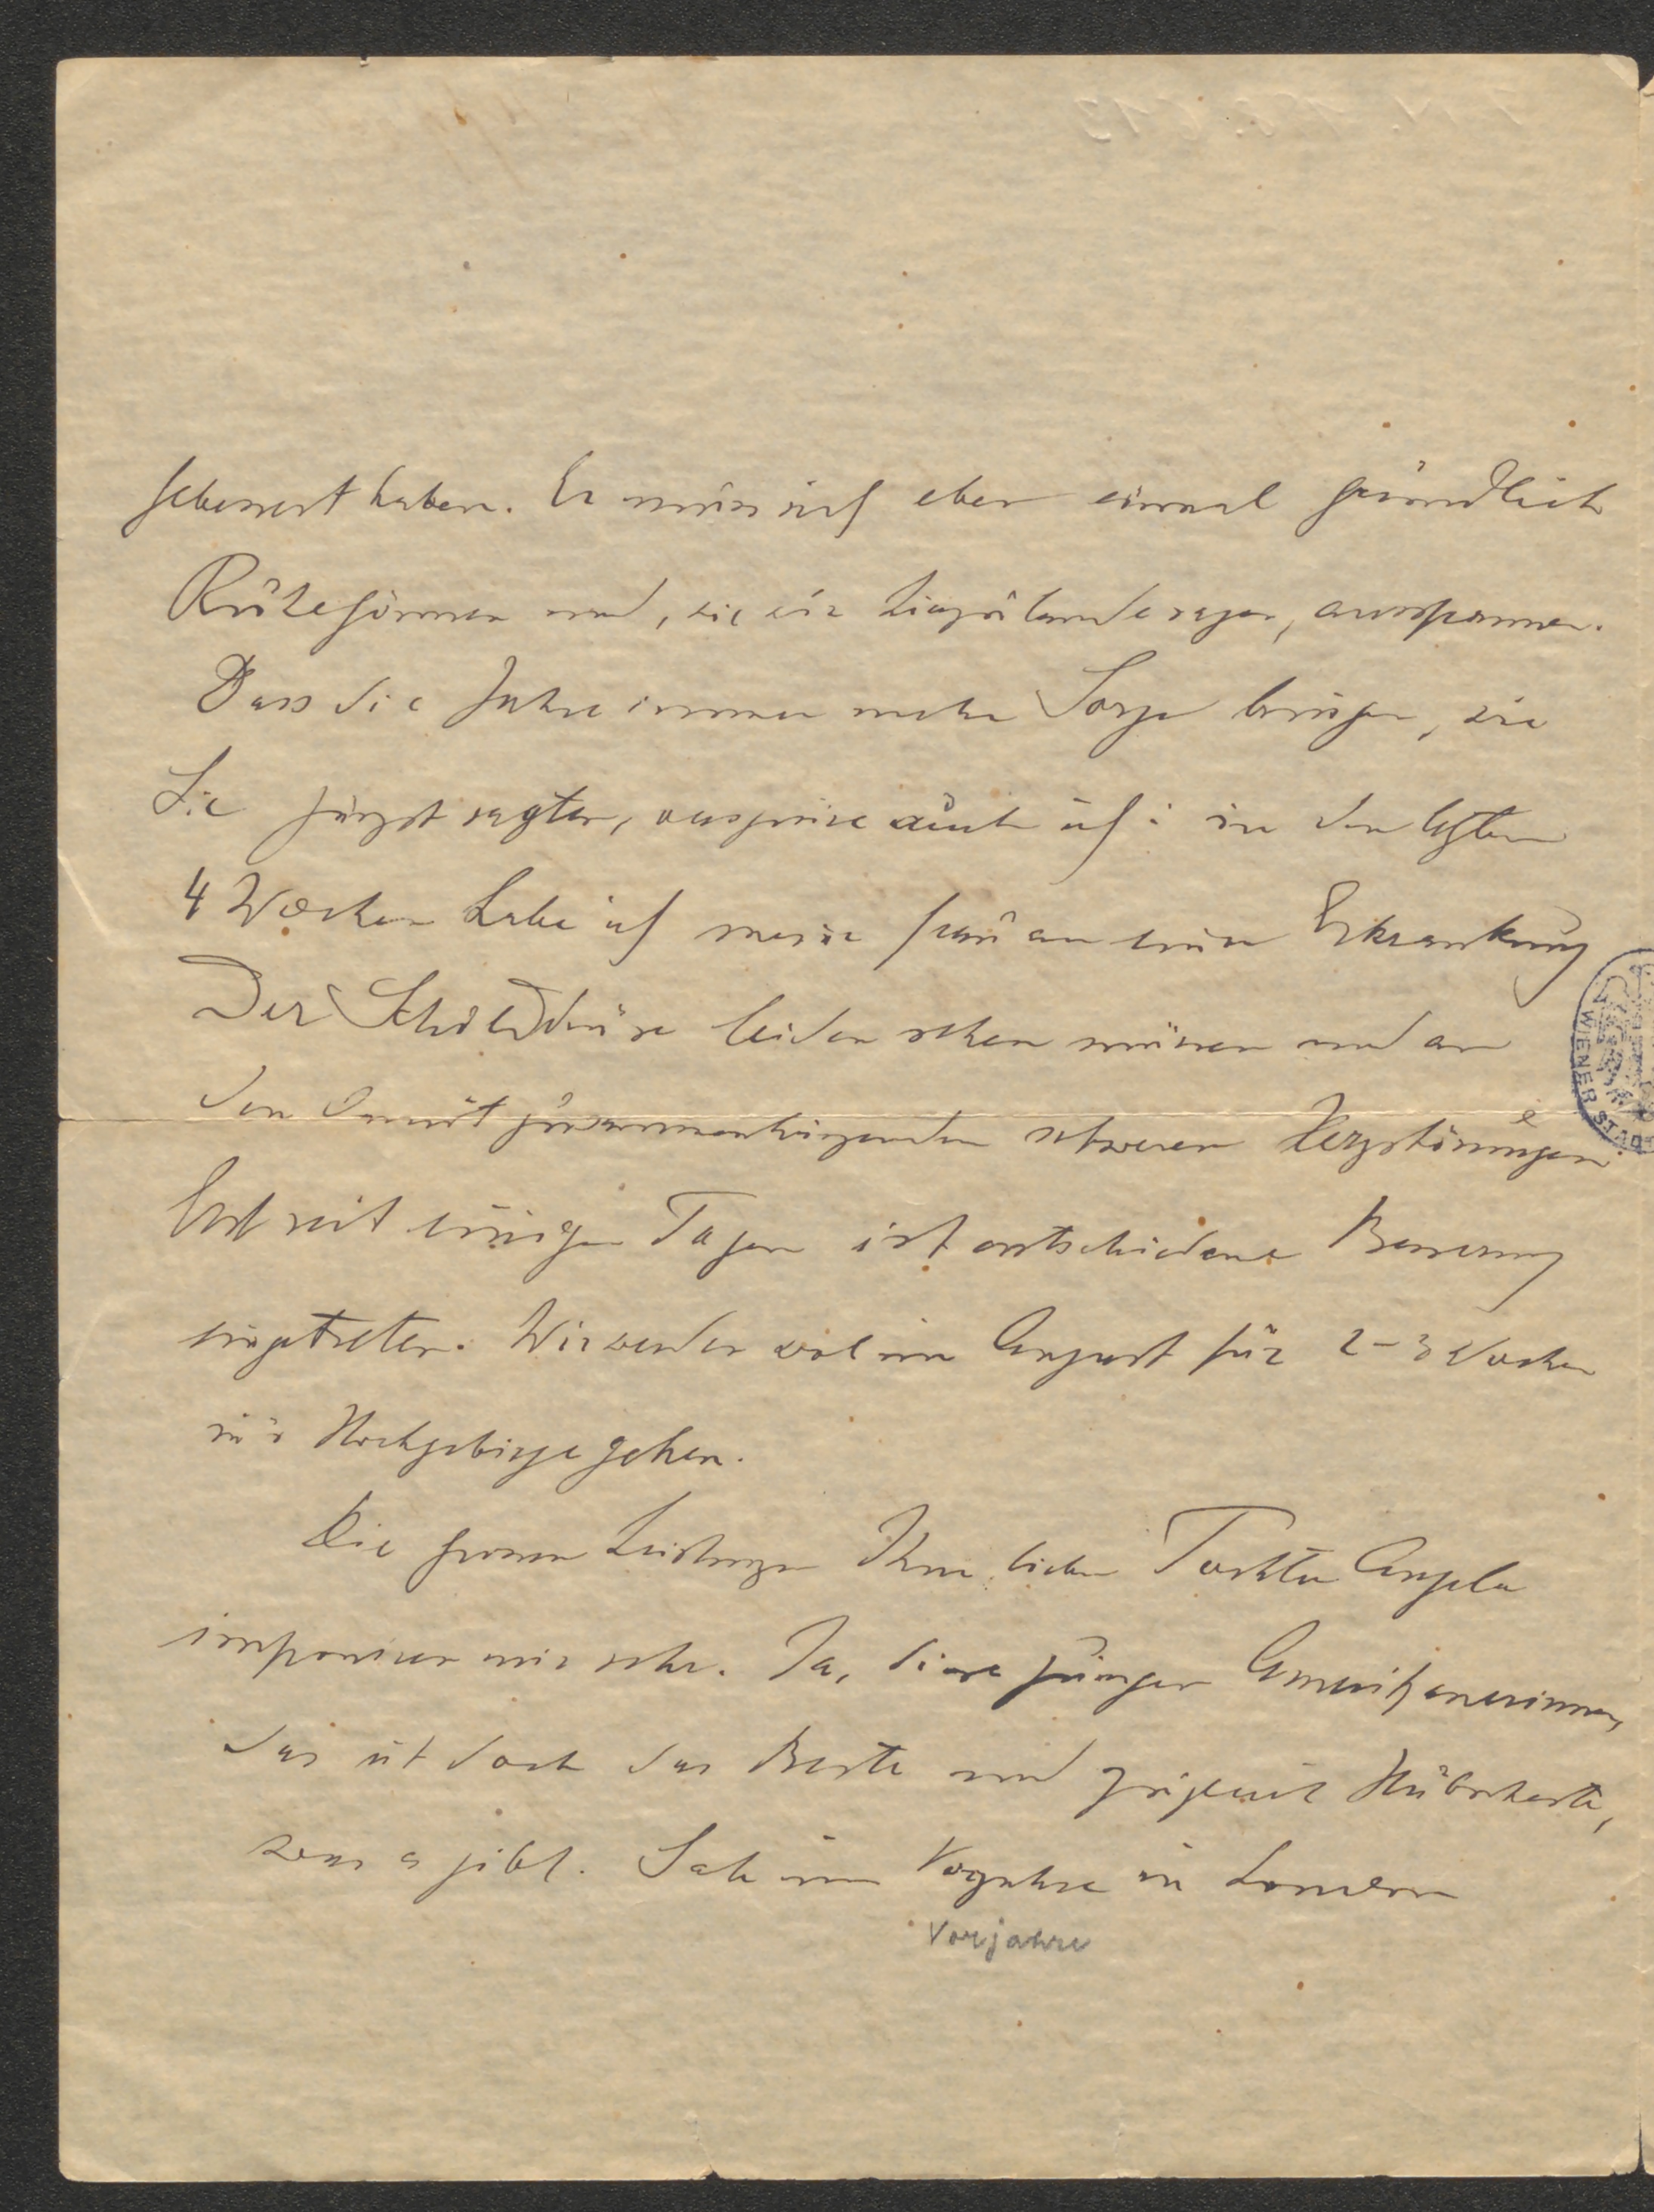 gebessert haben. Er muss sich eben einmal gründlich
Ruhe gönnen und, wie wir hierzulande sagen, ausspannen.
Dass die Jahre immer mehr Sorgen bringen, wie
Sie jüngst sagten, verspüre auch ich: in den letzten
4 Wochen habe ich meine Frau an einer Erkrankung
der Schilddrüse leiden sehen müssen und an
den damit zusammenhängenden schweren Herzstörungen.
Erst seit einigen Tagen ist entschiedene Besserung
eingetreten. Wir werden wol im August für 2-3 Wochen
in's Hochgebirge gehen.
Die grossen Leistungen Ihrer lieben Tochter Angela
imponieren mir sehr. Ja, diese jungen Amerikanerinnen,
das ist doch das Beste und zugleich Hübscheste,
was es gibt. Sah im Vorjahre in London
Vorjahre
WIENER STADT